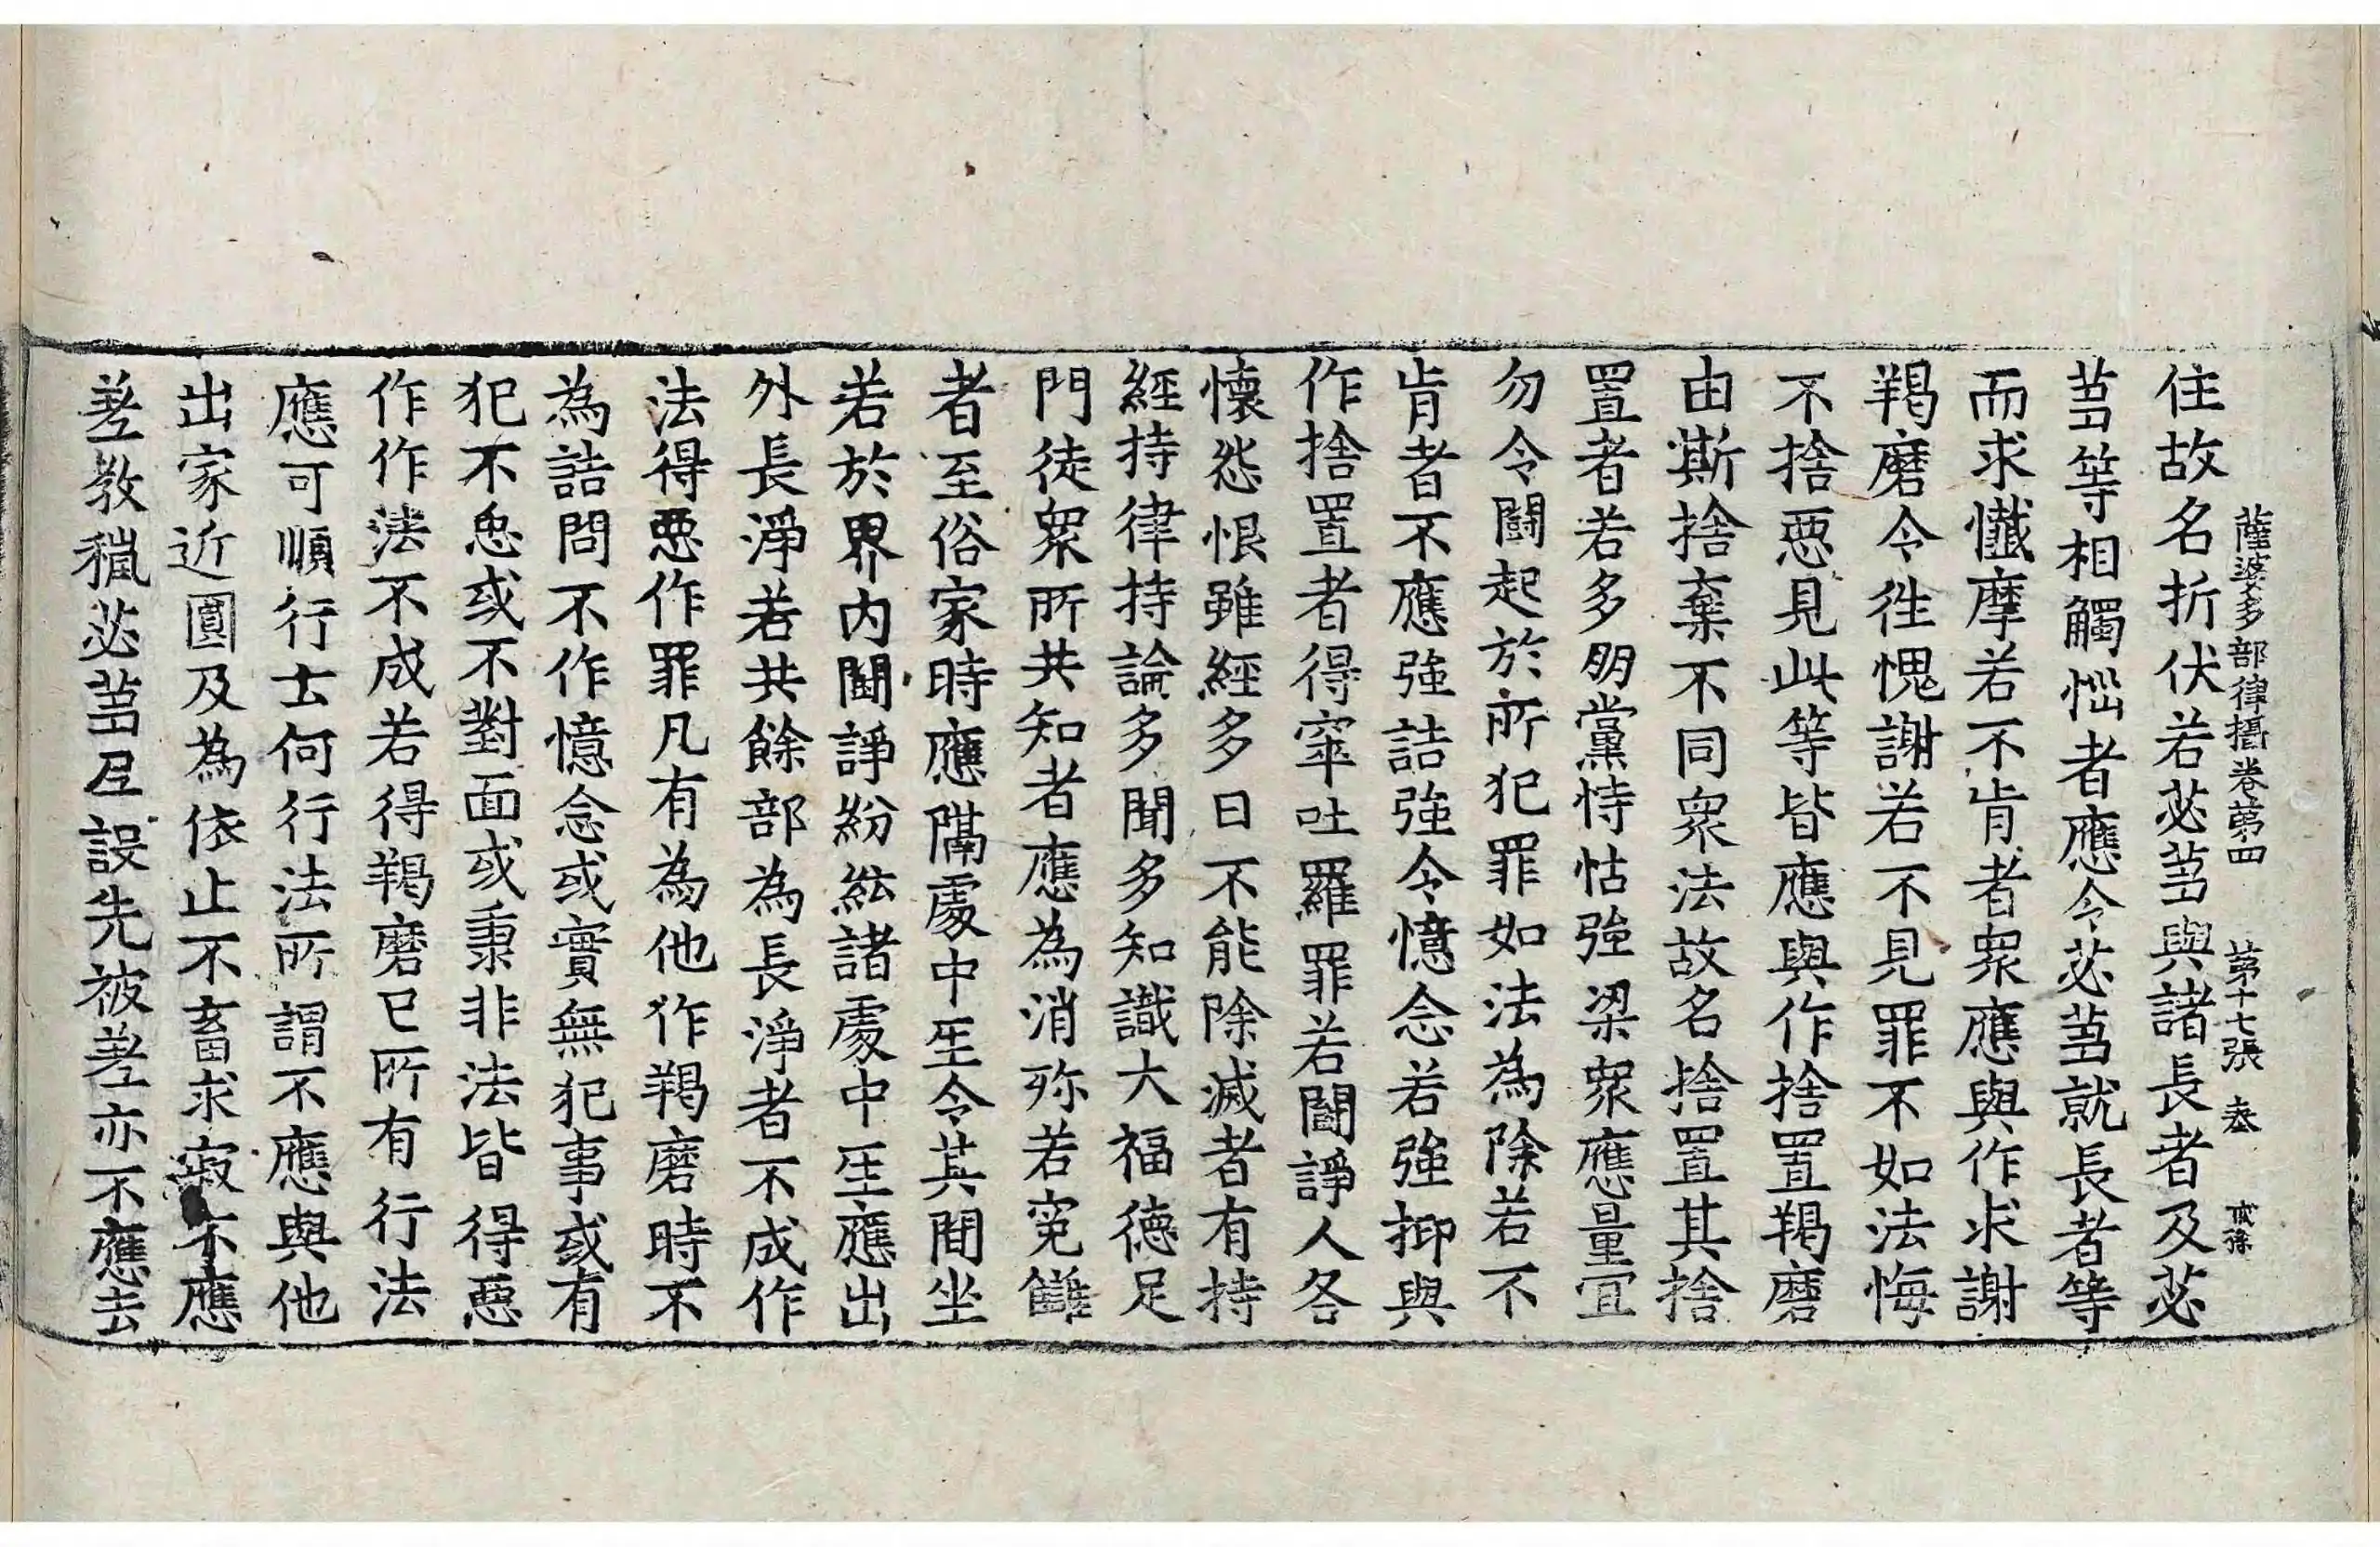 住故名折伏若苾芻與諸長者及苾
薩婆多部律攝卷第四 第十七張 㳟
芻等相觸惱者應令苾芻就長者等
而求懺摩若不肯者衆應與作求謝
羯磨令徃愧謝若不見罪不如法悔
不捨惡見此等皆應與作捨置羯磨
由斯捨棄不同衆法故名捨置其捨
置者若多朋黨恃怙強梁衆應量宜
勿令鬪起於所犯罪如法為除若不
肯者不應強詰強令憶念若強抑與
作捨置者得窣吐羅罪若鬪諍人各
懷怨恨雖經多日不能除滅者有持
經持律持論多聞多知識大福德足
門徒衆所共知者應為消殄若寃讎
者至俗家時應隔處中坐令其間坐
若於界內鬪諍紛紜諸處中坐應出
外長淨若共餘部為長淨者不成作
法得惡作罪凡有為他作羯磨時不
為詰問不作憶念或實無犯事或有
犯不免或不對面或秉非法皆得惡
作作法不成若得羯磨已所有行法
應可順行士何行法所謂不應與他
出家近圓及為依止不畜求寂不應
差教授苾芻尼設先被差亦不應去